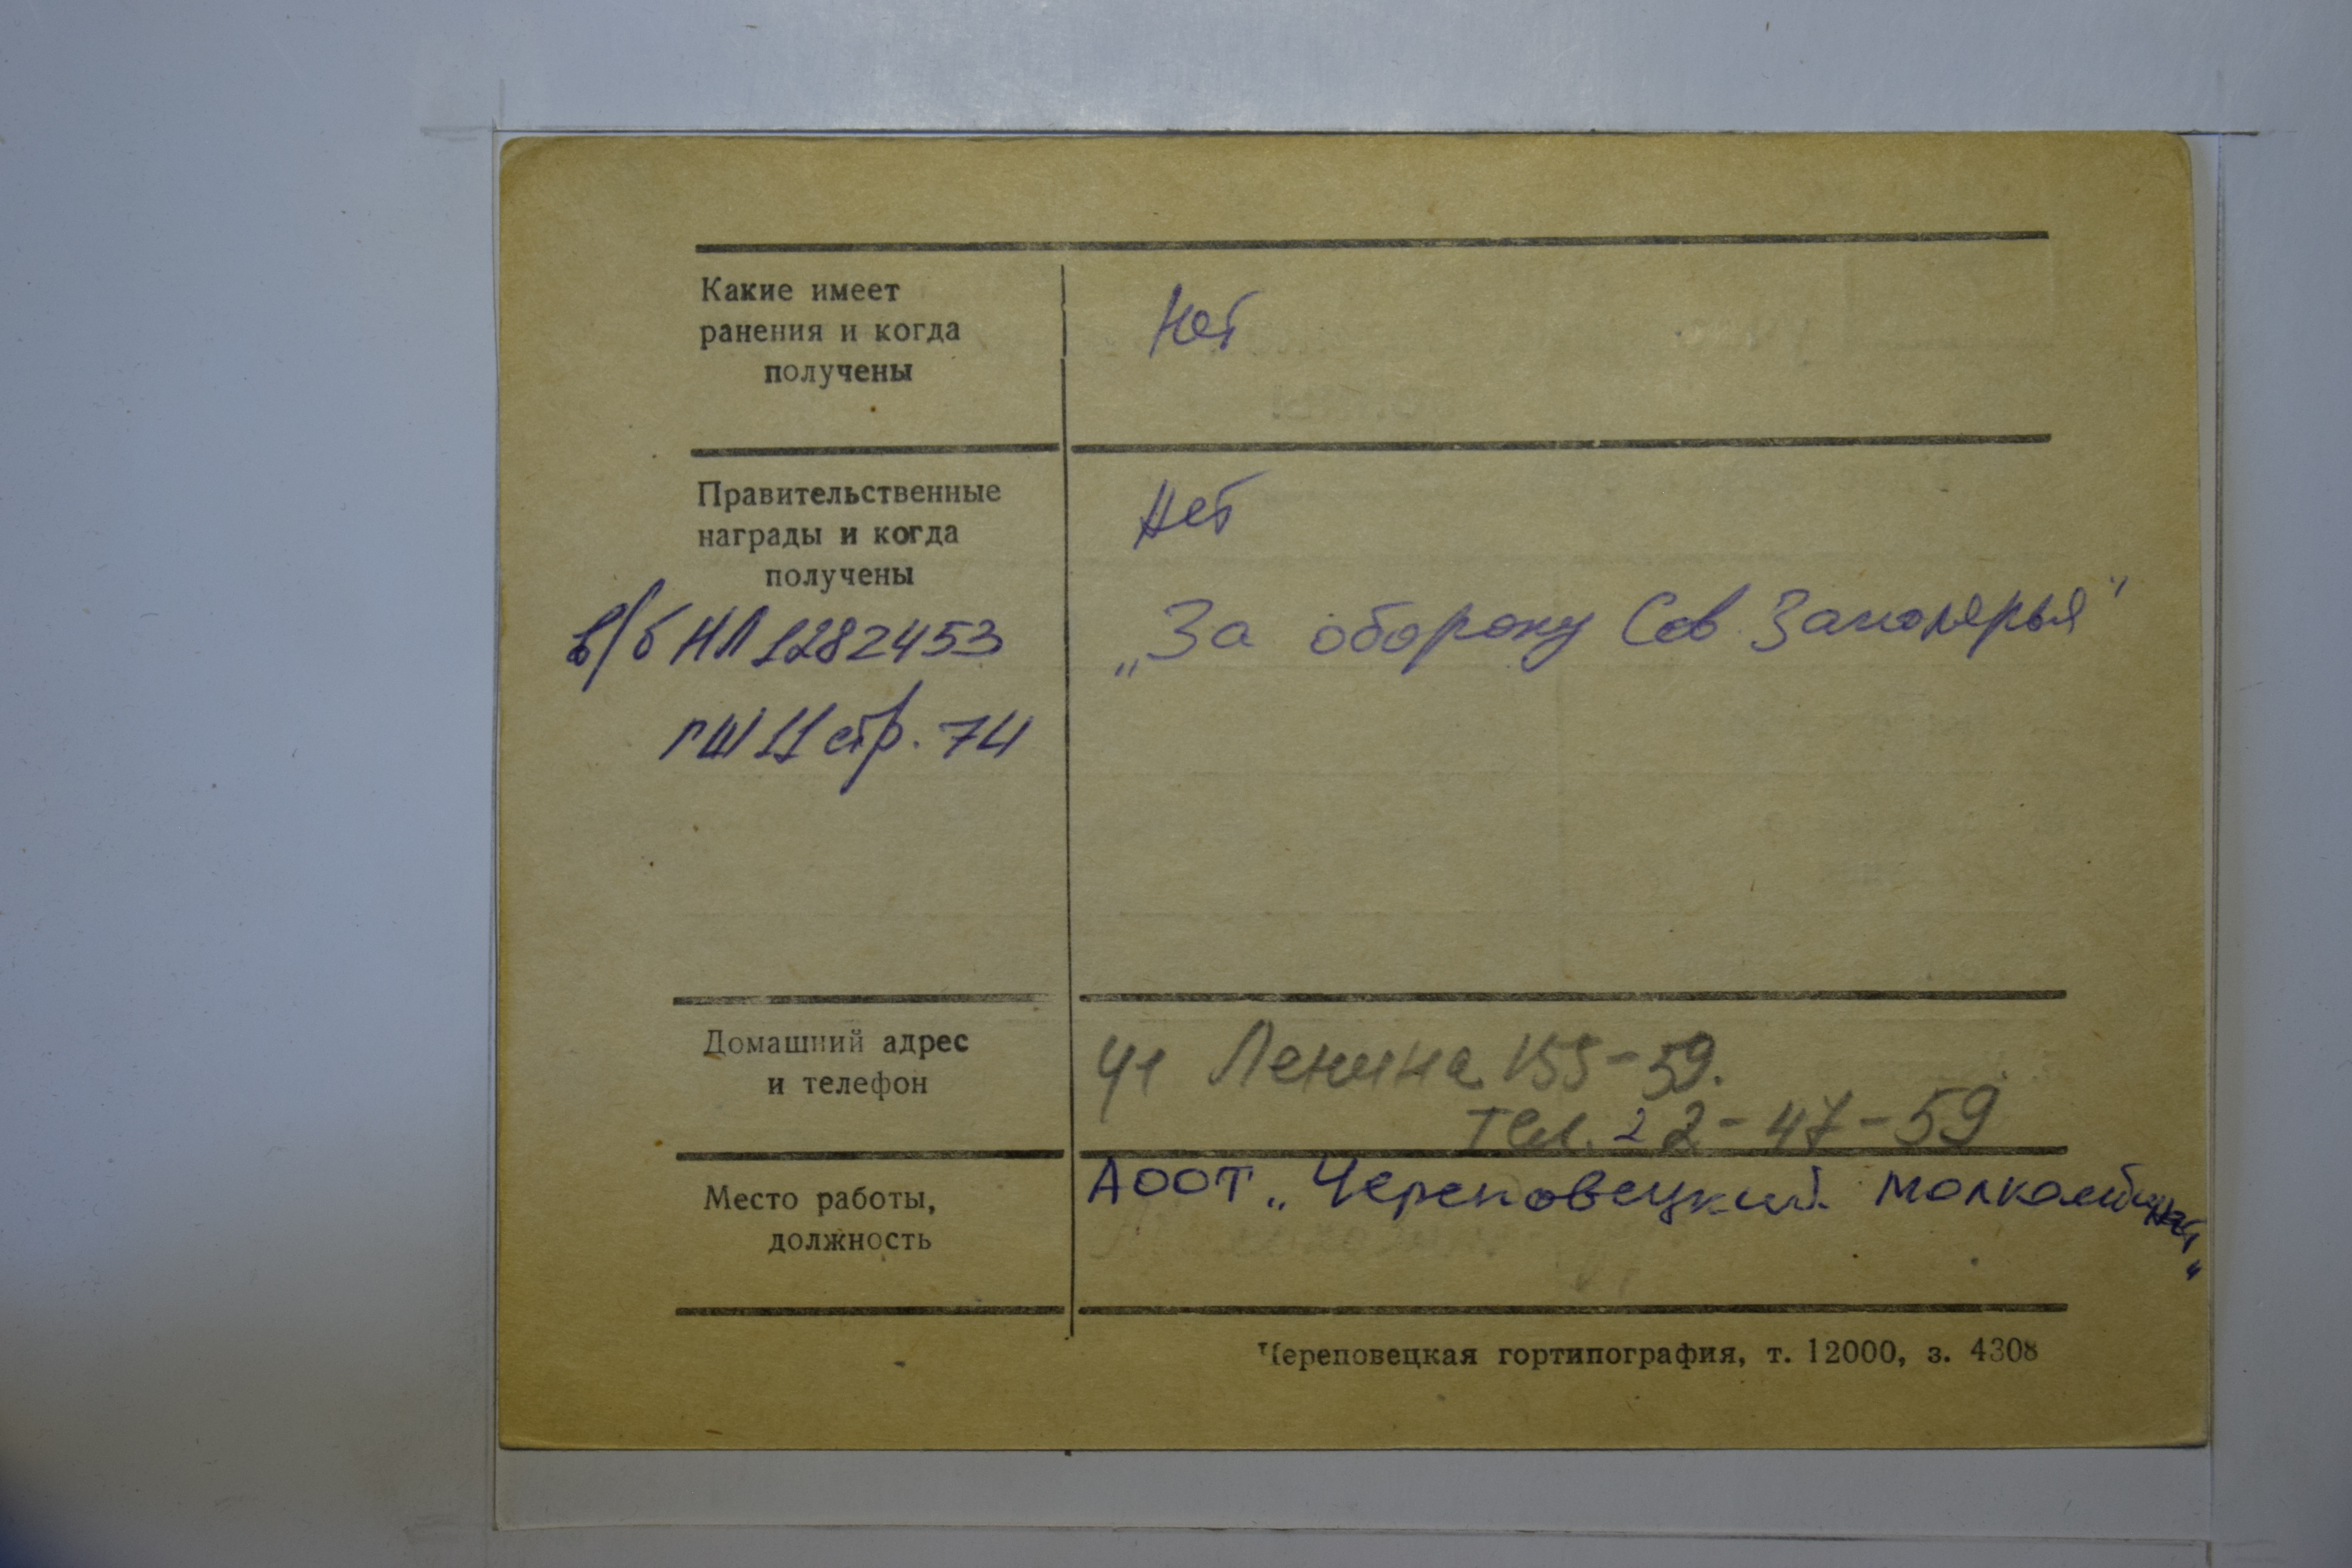 Какие имеет
ранения и когда
получены
Нет
Правительственные
награды и когда
получены
Нет
в/б НЛ 1282453
„За оборону Сов. Заполярья"
гш 11 стр. 74
Домашний адрес
и телефон
ул Ленина 155-59.
тел. 22-47-59
Место работы,
должность
АООТ „Череповецкий молкомбинат"
Череповецкая гортипография, т. 12000, з. 4308